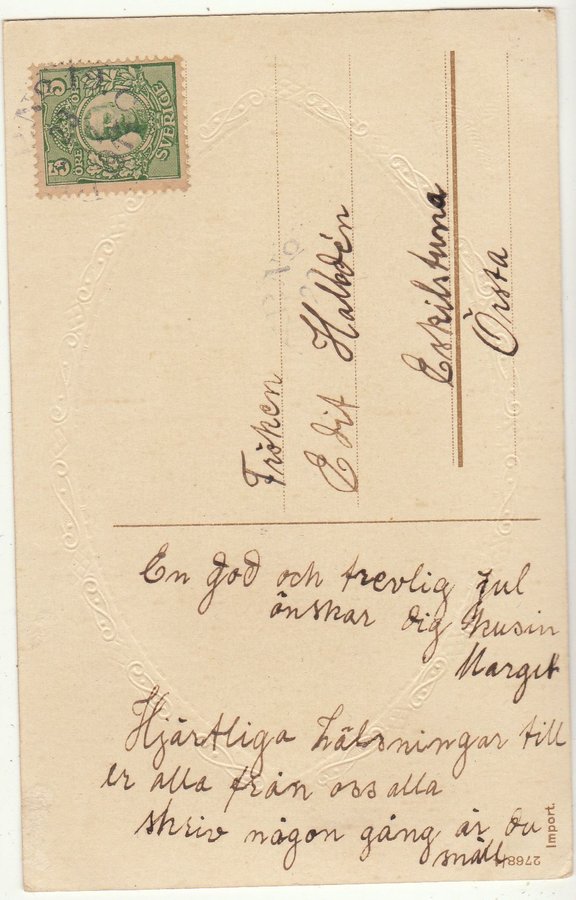 5 ÖRE
SVERIGE
5 ÖRE
Fröken
Edit Halldén
Eskilstuna
Örsta
En god och trevlig jul
önskar dig kusin
Margit
Hjärtliga hälsningar till
er alla från oss alla
skriv någon gång är du
snäll
Import.